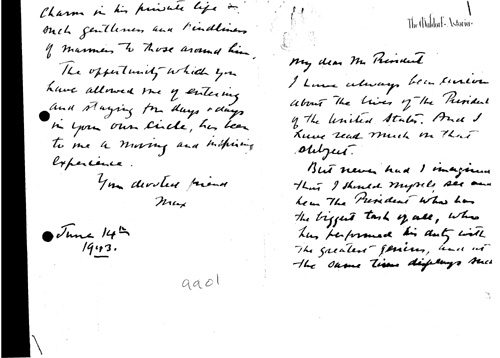 The Waldorf-Astoria
My dear Mr President
I have always been curious
about the lives of the Presidents
of the United States. And I
have read much on that
subject.
But never had I imagined
that I should myself see and
hear the President who has
the biggest task of all, who
has performed his duty with
the greatest genius, and at
the same time displays such
Charm in his private life &
such gentleness and kindliness
of manners to those around him.
The opportunity which you
have allowed me of entering
and staying for days & days
in your own circle, has been
to me a moving and inspiring
experience.
Your devoted friend
Max
June 14th
1943.